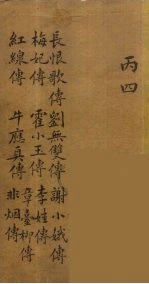 丙四
長恨歌傳 劉無雙傳 謝小娥傳
梅妃傳 霍小玉傳 李娃傳
紅線傳 牛應真傳 章臺柳傳 非烟傳